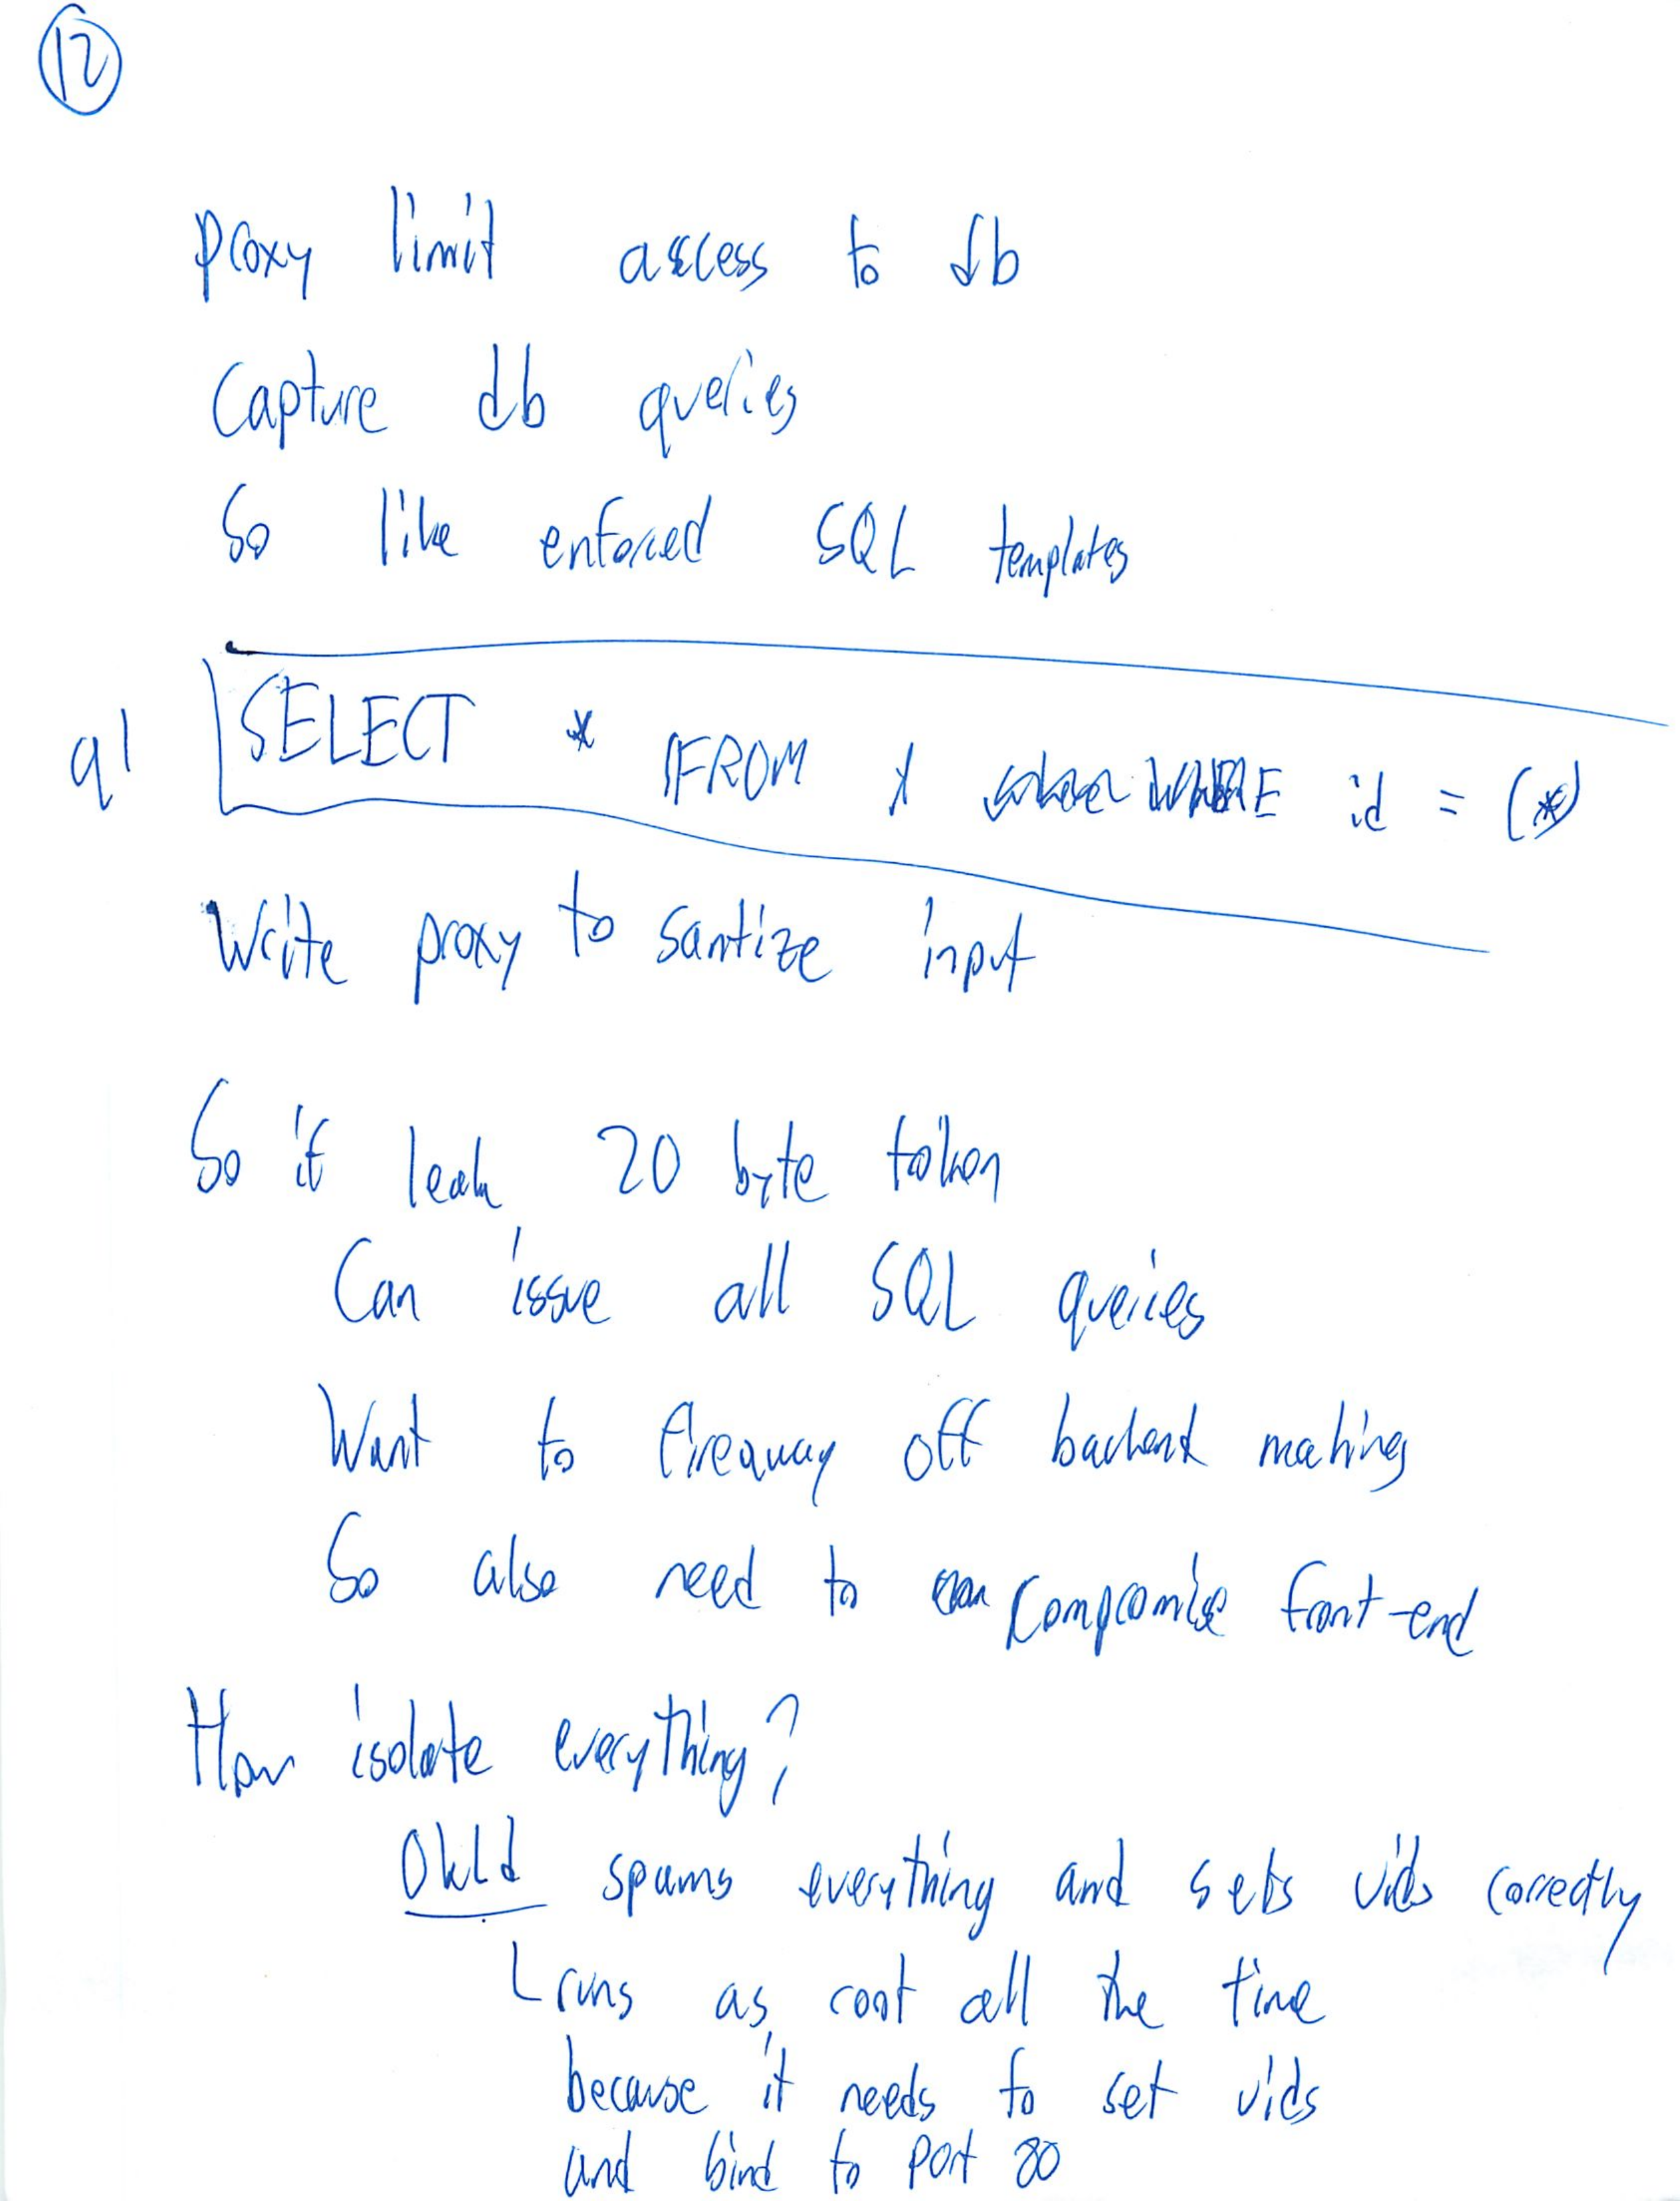 12
Proxy limit access to db
Capture db queries
So like enforced SQL templates
q1 SELECT * FROM x WHERE id = (*)
Write proxy to santize input
So if leak 20 byte token
Can issue all SQL queries
Want to fireaway off backend machines
So also need to compromise front-end
How isolate everything?
OKLd spawns everything and sets uids correctly
runs as root all the time
because it needs to set uids
and bind to port 80